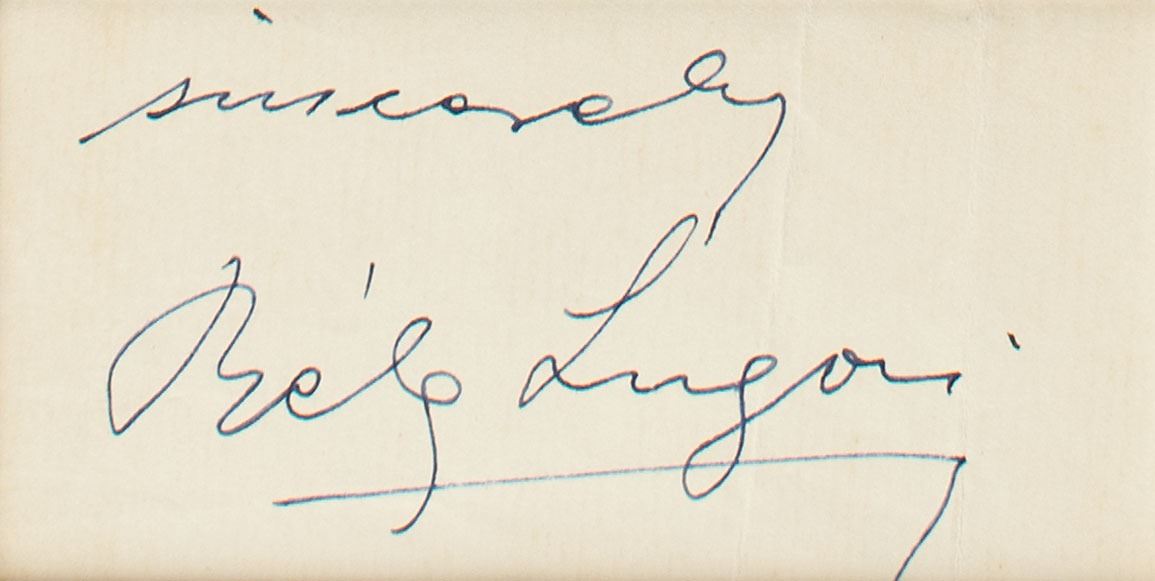 sincerely
Béla Lugosi